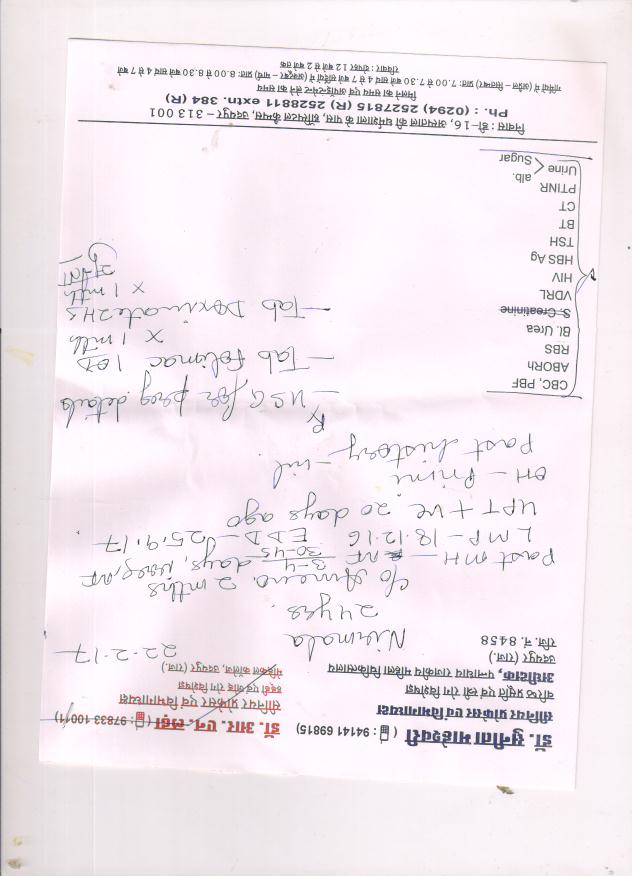 डॉ. सुनीता माहेश्वरी ( : 94141 69815)
सीनियर प्रोफेसर एवं विभागाध्यक्ष
वरिष्ठ प्रसूति एवं स्त्री रोग विशेषज्ञ
अधीक्षक, पन्नाधाय राजकीय महिला चिकित्सालय
उदयपुर (राज.)
रजि. नं. 8458
डॉ. आर. एन. लढ्ढा ( : 97833 10011)
सीनियर प्रोफेसर एवं विभागाध्यक्ष
हड्डी एवं जोड़ रोग विशेषज्ञ
मेडिकल कॉलेज, उदयपुर (राज.)
22-2-17
Nirmala
24 yrs.
c/o Ameno. 2 mths
Past MH - 3-4/30-45 days, reg, NF
LMP - 18.12.16 EDD - 25.9.17
UPT + ve 20 days ago
OH - Primi
Past history - nil.
Rx
- USG for preg. details
- Tab Folimac 1 OD
x 1 mth
- Tab Doxinate 2 HS
x 1 mth
CBC, PBF
ABORh
RBS
Bl. Urea
S. Creatinine
VDRL
HIV
HBS Ag
TSH
BT
CT
PTINR
Urine < alb.
Sugar
निवास : डी-16, अस्पताल की धर्मशाला के पास, हॉस्पिटल कैम्पस, उदयपुर - 313 001
Ph. : (0294) 2527815 (R) 2528811 extn. 384 (R)
मिलने का समय एवं अपॉइन्टमेन्ट लेने का समय
गर्मियों में (अप्रैल - सितम्बर) प्रातः 7.00 से 7.30 बजे सायं 4 से 7 बजे सर्दियों में (अक्टूबर - मार्च) प्रातः 8.00 से 8.30 बजे सायं 4 से 7 बजे
रविवार : दोपहर 12 बजे से 2 बजे तक